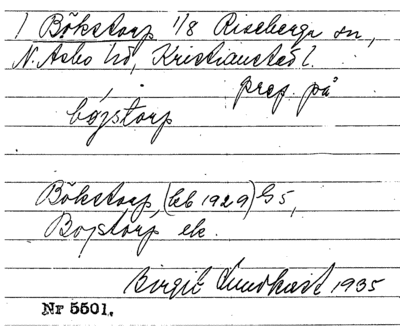 1 Bökstorp 1/8 Riseberga sn,
N. Åsbo hd, Kristianstad l.
prep. på
bøjstorp
Bökstorp, (kb 1929) G5,
Bojstorp ek.
Birgit Lundkvist 1935
Nr 5501.